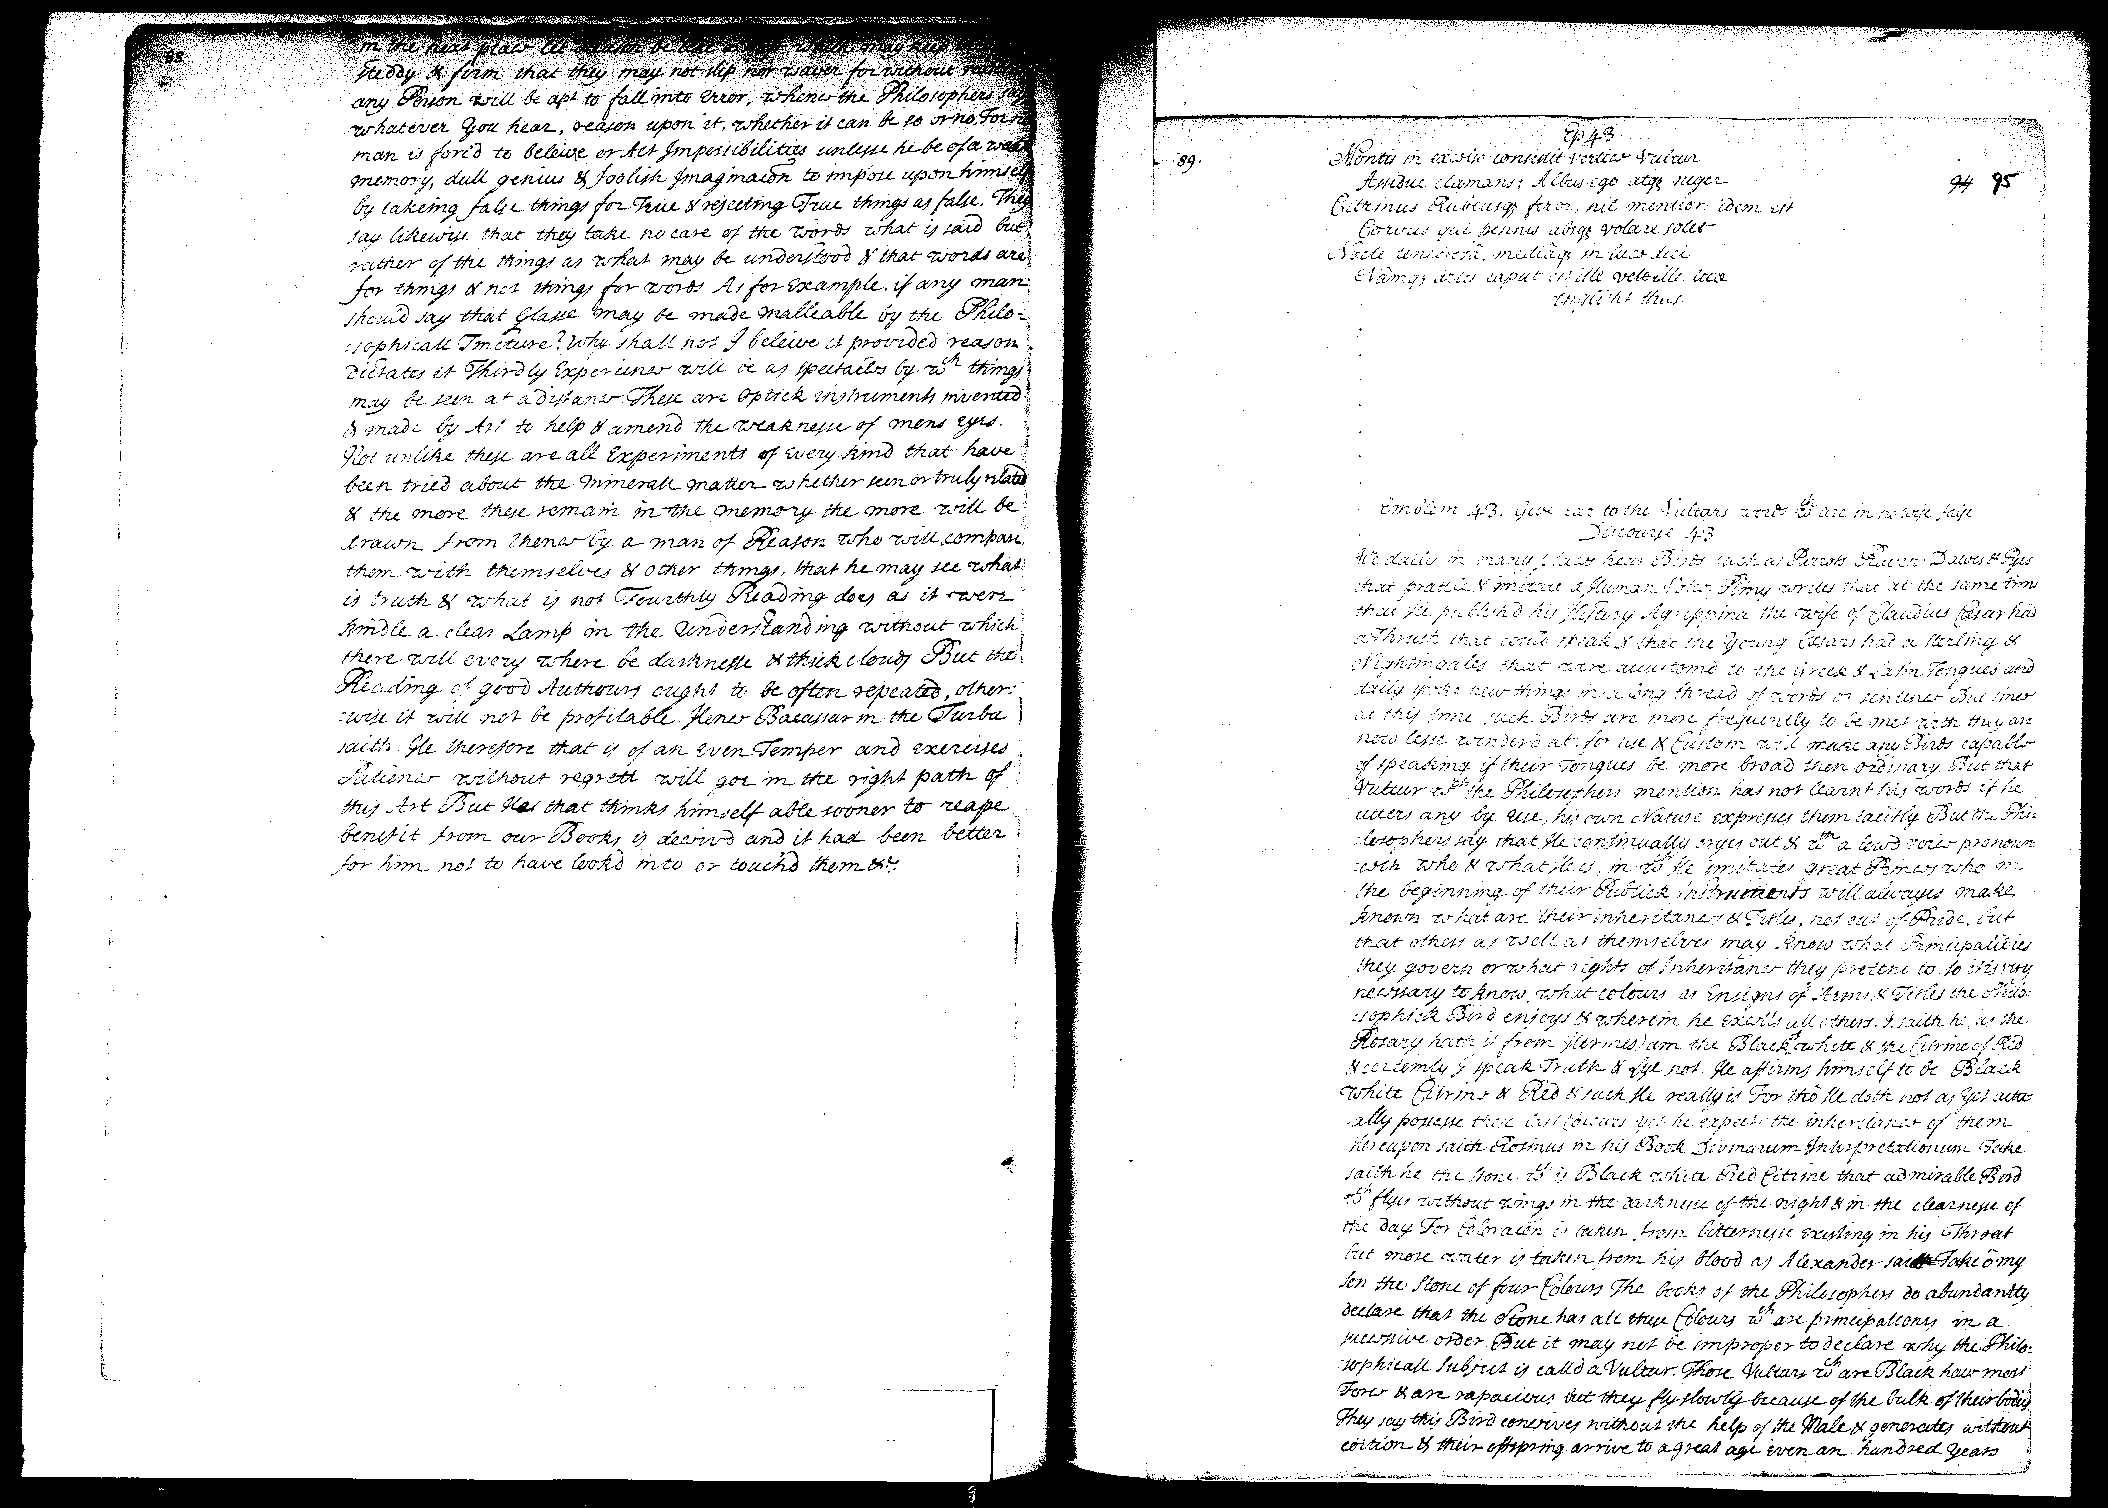 88
In the next place let Reason be like a staff which may keep
steddy & firm that they may not slip nor waver for without
any Person will be apt to fall into Error, whence the Philosophers say
whatever You hear, reason upon it, whether it can be so or no. For no
man is forc'd to beleive or Act Impossibilities unlesse he be of a weak
memory, dull genius & foolish Imaginaion to impose upon himself
by takeing false things for True & rejecting True things as false. They
say likewise that they take no care of the words what is said but
rather of the things as what may be understood & that words are
for things & not things for words As for Example, if any man
should say that Glasse may be made malleable by the Philo=
:sophicall Tincture? Why shall not I beleive it provided reason
dictates it Thirdly Experience will be as spectacles by wch things
may be seen at a distance These are Optick instruments invented
& made by Art to help & amend the weaknesse of mens eyes.
Not unlike these are all Experiments of every kind that have
been tried about the Minerall matter whether seen or truly related
& the more these remain in the memory the more will be
drawn from thence by a man of Reason who will compare
them with themselves & other things, that he may see what
is truth & what is not Fourthly Reading does as it were
kindle a clear Lamp in the Understanding without which
there will every where be darknesse & thick clouds But the
Reading of good Authours ought to be often repeated, other:
:wise it will not be profitable. Hence Bacassar in the Turba
saith He therefore that is of an Even Temper and exercises
Patience without regrett will goe in the right path of
this Art But Hee that thinks himself able sooner to reape
benefit from our Books is deceivd and it had been better
for him not to have look'd into or touch'd them &c.
89.
Ep 43
94 95
Montis in excelso consistit vertice Vultur
Assidue clamans; Albus ego atq niger
Citrinus Rubeusq feror, nil mentior: idem est
Corvus qui pennis absq volare solet
Nocte tenebrosâ, mediâq in luce diei
Namq artis caput est ille vel ille tuæ
Englisht thus
Emblem 43. Give ear to the Vulturs words wch are in no wise false
Discourse 43
We daily in many places hear Birds such as Parrots Ravens Dawes & Pyes
that prattle & imitate a Human Voice Pliny writes that at the same time
that He publish'd his History Agrippina the wife of Claudius Cæsar had
a Thrush that could speak & that the Young Cæsars had a sterling &
Nightingales that were accustomd to the Greek & Latin Tongues and
daily spoke new things in a long thread of words or sentence But since
at this time such Birds are more frequently to be met with they are
now lesse wonder'd at: for use & Custom will make any Birds capable
of speaking if their Tongues be more broad then ordinary. But that
Vultur wch the Philosophers mention has not learnt his words if he
utters any by use, his own Nature expresses them tacitly But the Phi:
:losophers say that He continually cryes out & wth a lowd voice pronoun
:ceth who & what He is, in wch He imitates great Princes who in
the beginning of their Publick Instruments will always make
known what are their inheritances & Titles, not out of Pride, but
that others as well as themselves may know what Principalities
they govern or what rights of Inheritance they pretend to. So it is very
necessary to know what colours as Ensigns of Arms & Titles the Philo:
:sophick Bird enjoys & wherein he excells all others. I, saith he, (as the
Rosary hath it from Hermes) am the Black, white & the Citrine & Red
& certeinly I speak Truth & Lye not. He affirms himself to be Black
White Citrine & Red & such He really is For tho He doth not as yet actu
:ally possesse these last Colours yet he expects the inheritance of them
Hereupon saith Rosinus in his Book Divinarum Interpretationum Take
saith he the stone wch is Black white Red Citrine that admirable Bird
wch flyes without wings in the darknesse of the night & in the clearnesse of
the day For Coloraion is taken from bitternesse existing in his Throat
but more water is taken from his blood as Alexander saith Take ô my
Son the Stone of four Colours The books of the Philosophers do abundantly
declare that the Stone has all these Colours wch are principall ones in a
successive order But it may not be improper to declare why the Philo:
:sophicall Subject is call'd a Vultur. Those Vulturs wch are Black have most
Force & are rapacious but they fly slowly because of the bulk of their bodies
They say this Bird conceives without the help of the Male & generates without
coition & their offspring arrive to a great age even an hundred Years